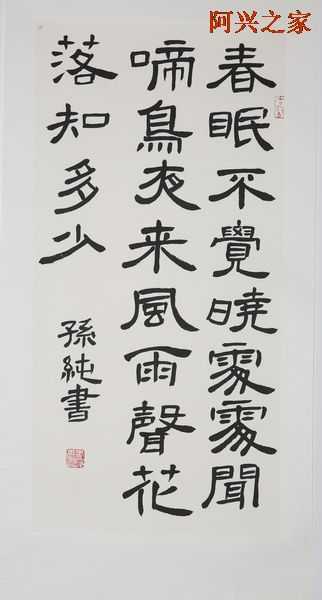 阿兴之家
春眠不覺曉處處聞
啼鳥夜来風雨聲花
落知多少
孫純書